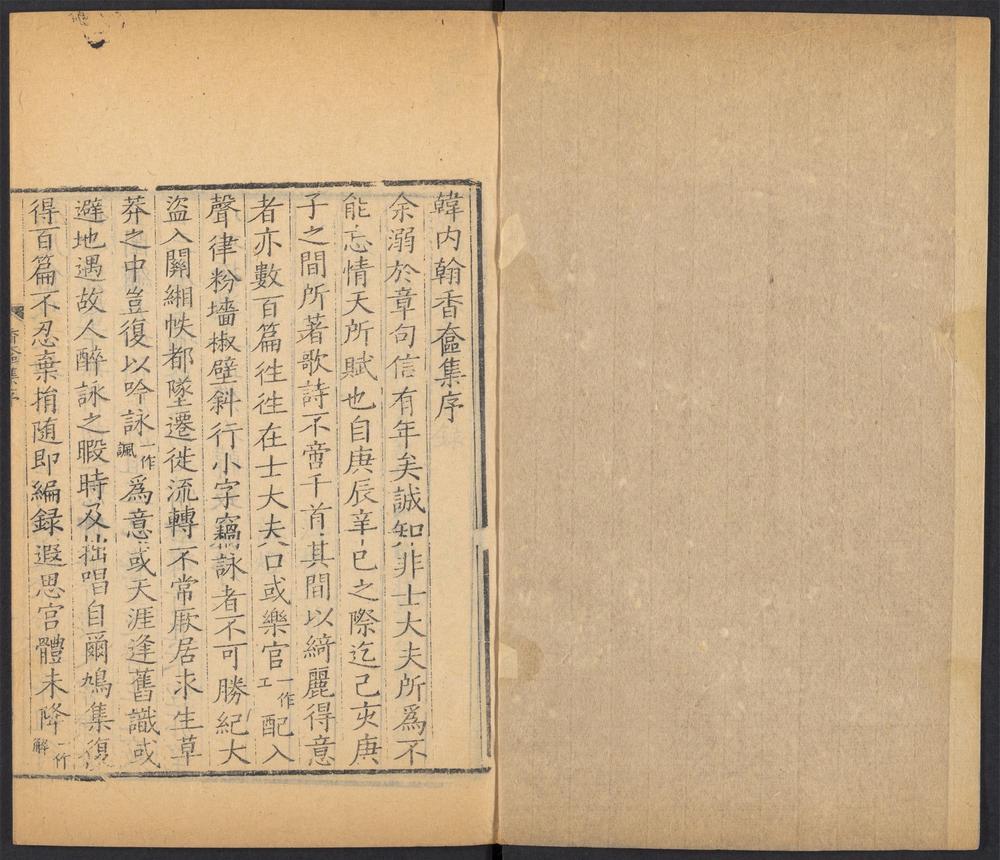 韓内翰香奩集序
余溺於章句信有年矣誠知非士大夫所爲不
能忘情天所賦也自庚辰辛巳之際迄己亥庚
子之間所著歌詩不啻千首其間以綺麗得意
者亦數百篇往往在士大夫口或樂官一作工配入
聲律粉墻椒壁斜行小字竊詠者不可勝紀大
盜入關緗帙都墜遷徙流轉不常厥居求生草
莽之中豈復以吟詠一作諷爲意或天涯逢舊識或
避地遇故人醉詠之暇時及拙唱自爾鳩集復
得百篇不忍棄捐随即編録遐思宫體未降一作解